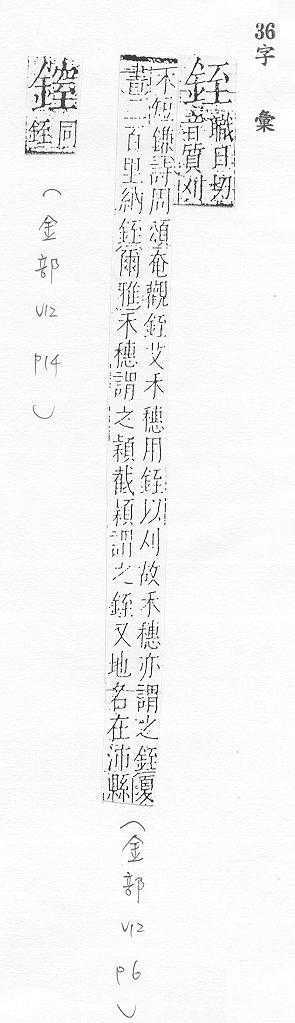 36字 彙
銍 職日切音質刈
禾短鎌詩周頌奄觀銍艾禾穗用銍以刈故禾穗亦謂之銍夏
書二百里納銍爾雅禾穗謂之穎截穎謂之銍又地名在沛縣
(金部 V12 P6)
同銍
(金部 V12 P14)